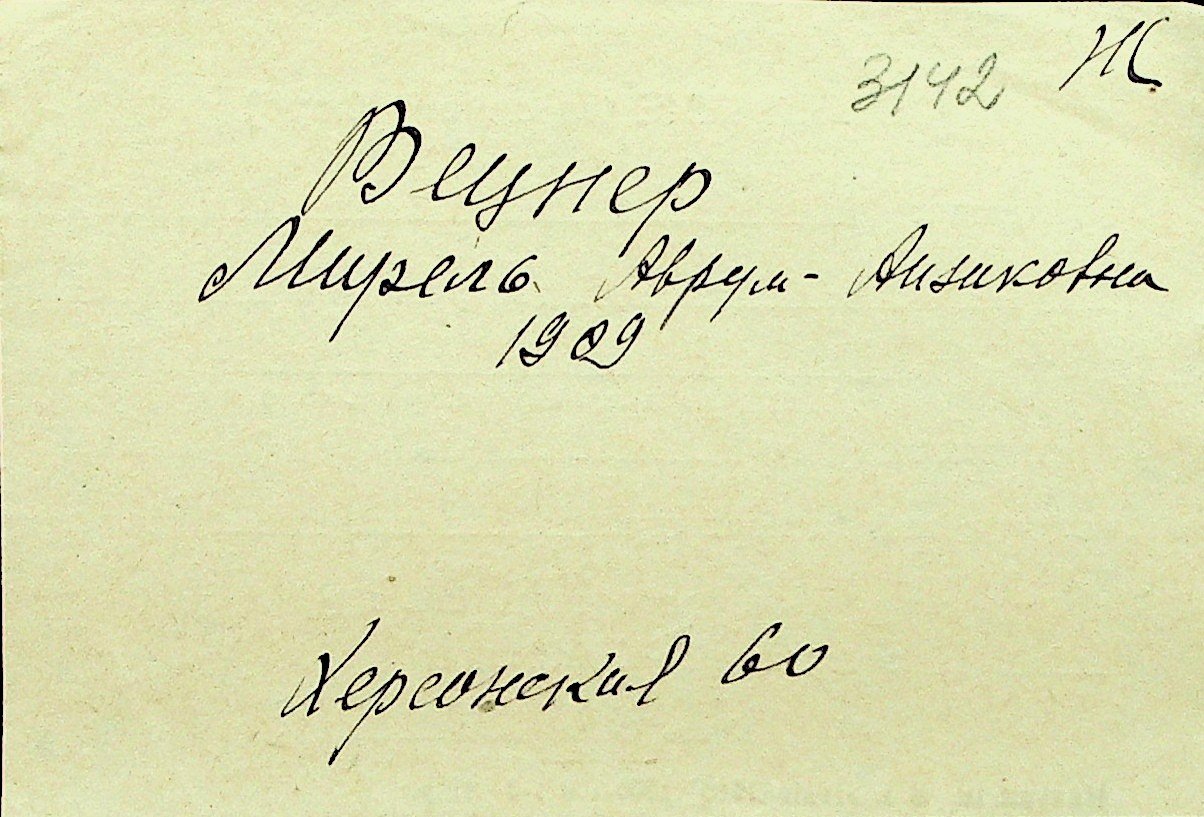 3142 Ж
Вецнер
Мирель Аврум-Аизиковна
1909
Херсонская 60